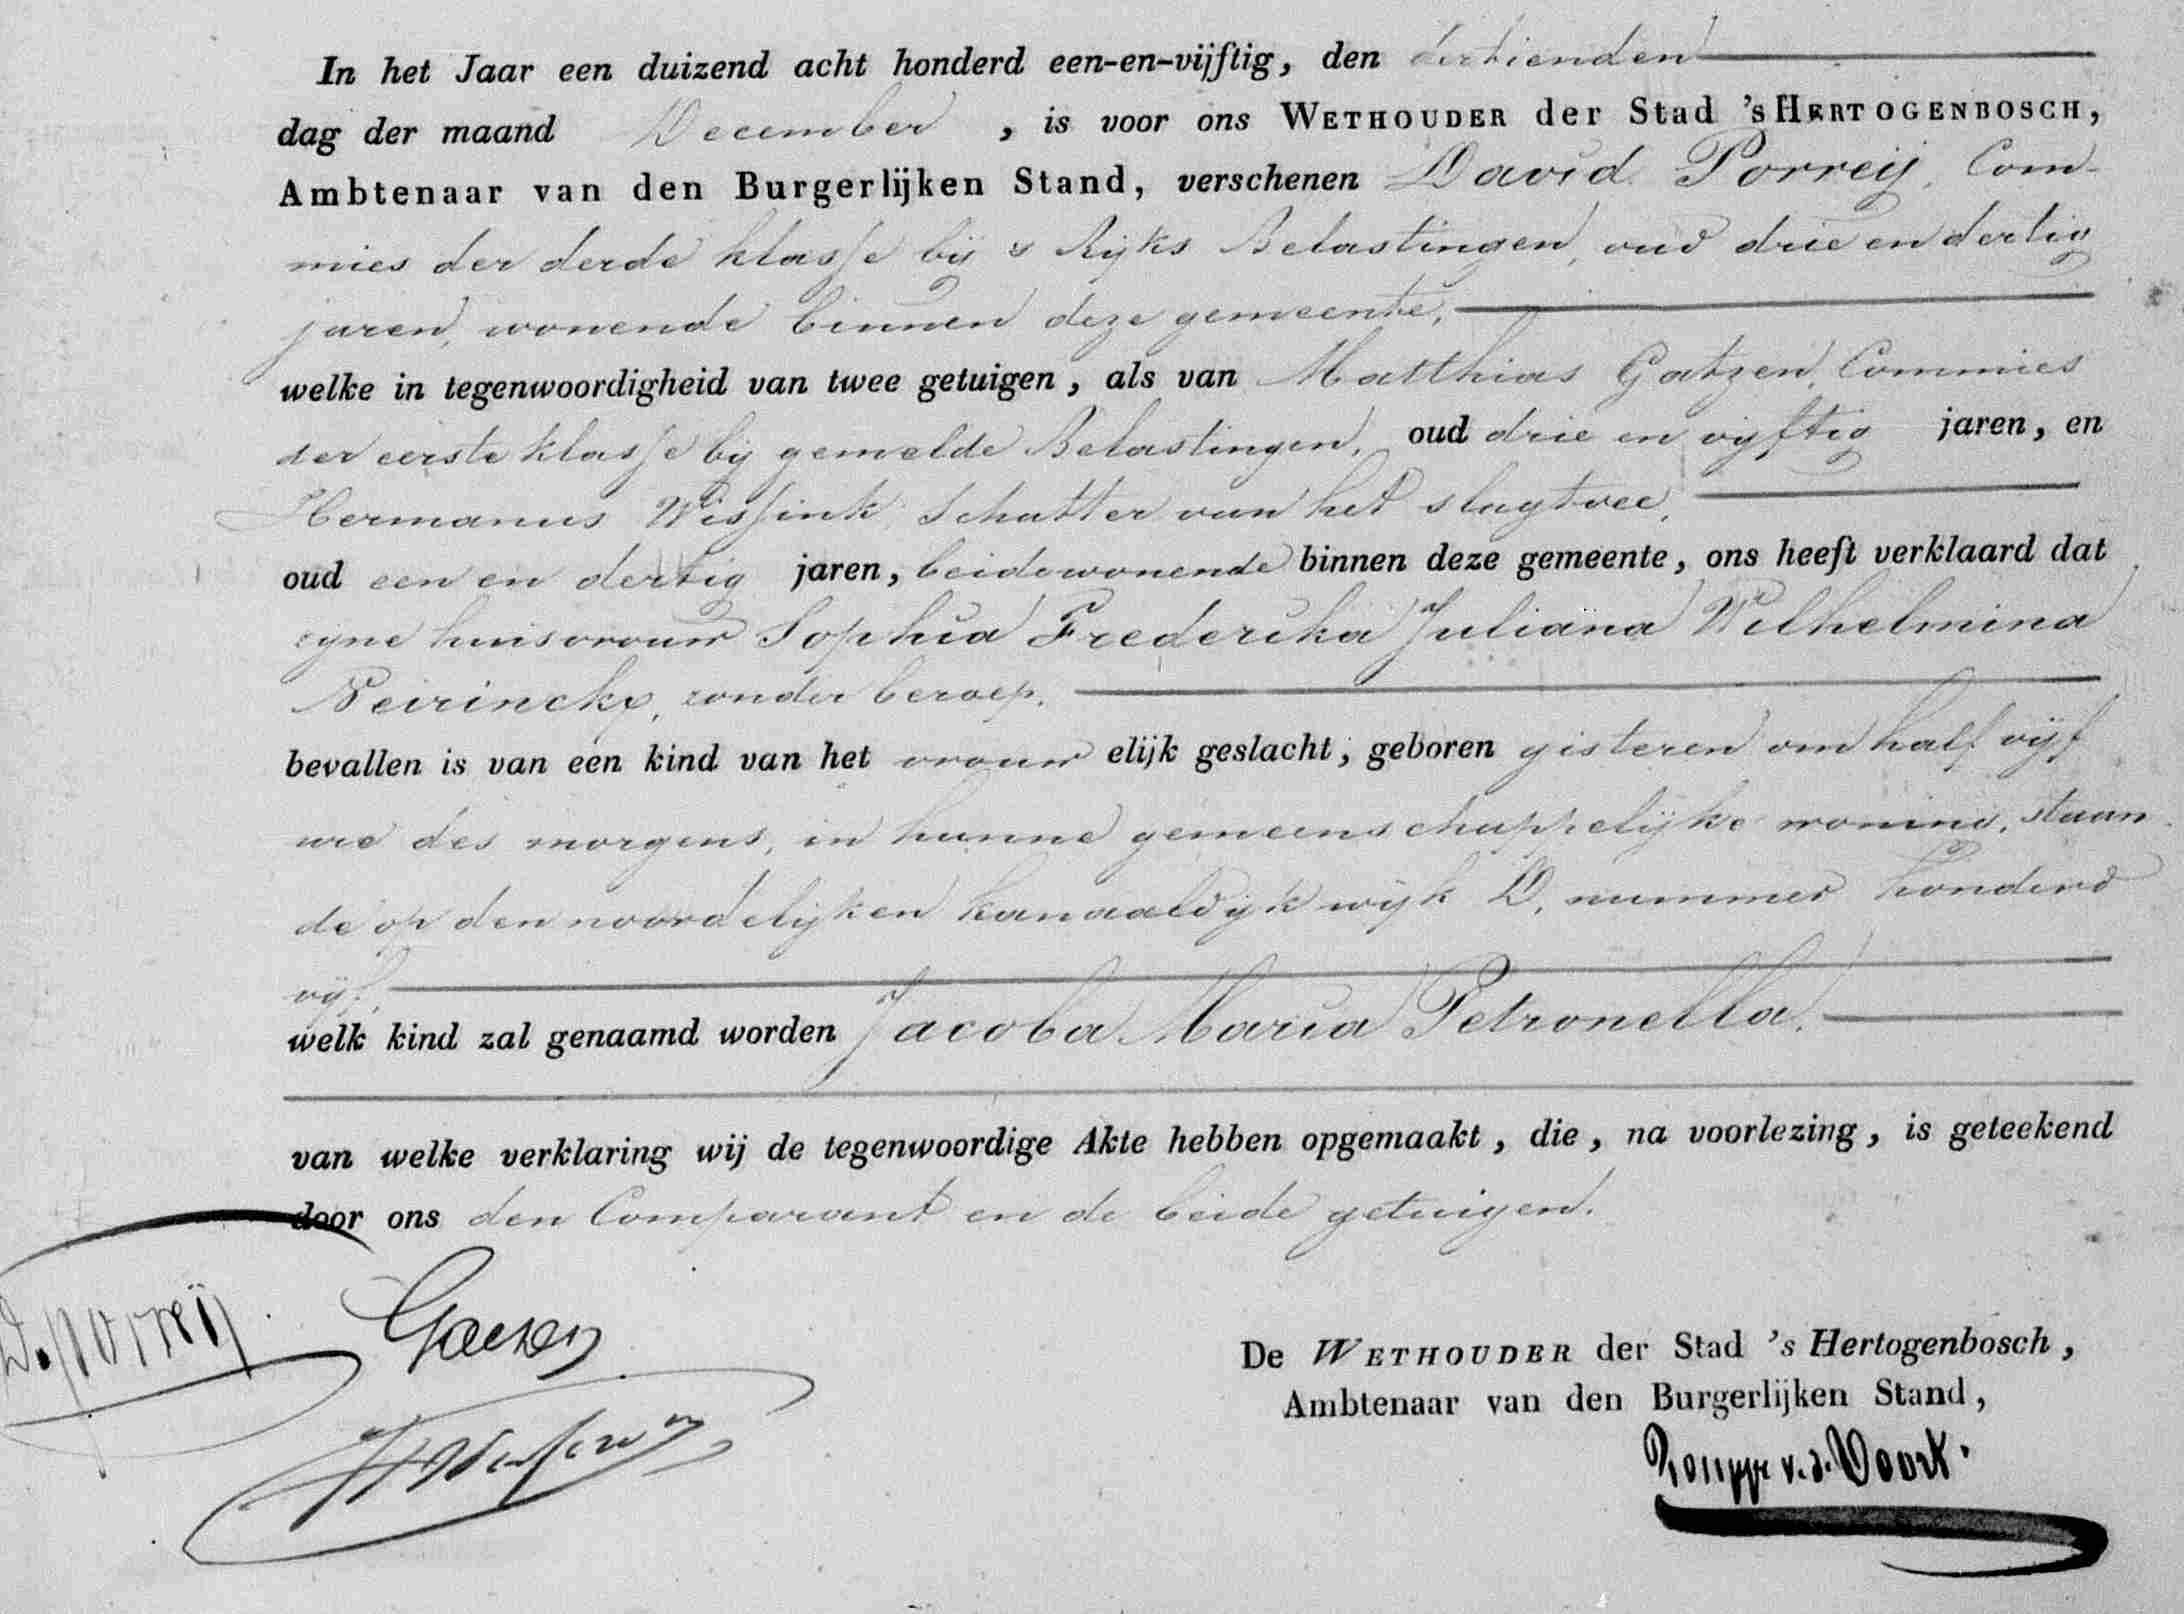 In het Jaar een duizend acht honderd een-en-vijftig, den dertienden
dag der maand December, is voor ons WETHOUDER der Stad 'sHERTOGENBOSCH,
Ambtenaar van den Burgerlijken Stand, verschenen David Porreij, Com-
mies der derde klasse bij 's Rijks Belastingen, oud drie en dertig
jaren, wonende binnen deze gemeente,
welke in tegenwoordigheid van twee getuigen, als van Matthias Gatzen, Commies
der eerste klasse bij gemelde Belastingen, oud drie en vijftig jaren, en
Hermanus Wissink Schatter van het slagtvee,
oud een en dertig jaren, beide wonende binnen deze gemeente, ons heeft verklaard dat
zijne huisvrouw Sophia Frederika Juliana Wilhelmina
Neirinckx, zonder beroep,
bevallen is van een kind van het vrouwelijk geslacht, geboren gisteren om half vijf
ure des morgens, in hunne gemeenschappelijke woning, staan
de op den noordelijken kanaaldijk wijk D, nummer honderd
vijf,
welk kind zal genaamd worden Jacoba Maria Petronella.
van welke verklaring wij de tegenwoordige Akte hebben opgemaakt, die, na voorlezing, is geteekend
door ons den Comparant en de beide getuigen.
D. porreij
De WETHOUDER der Stad 's Hertogenbosch,
Ambtenaar van den Burgerlijken Stand,